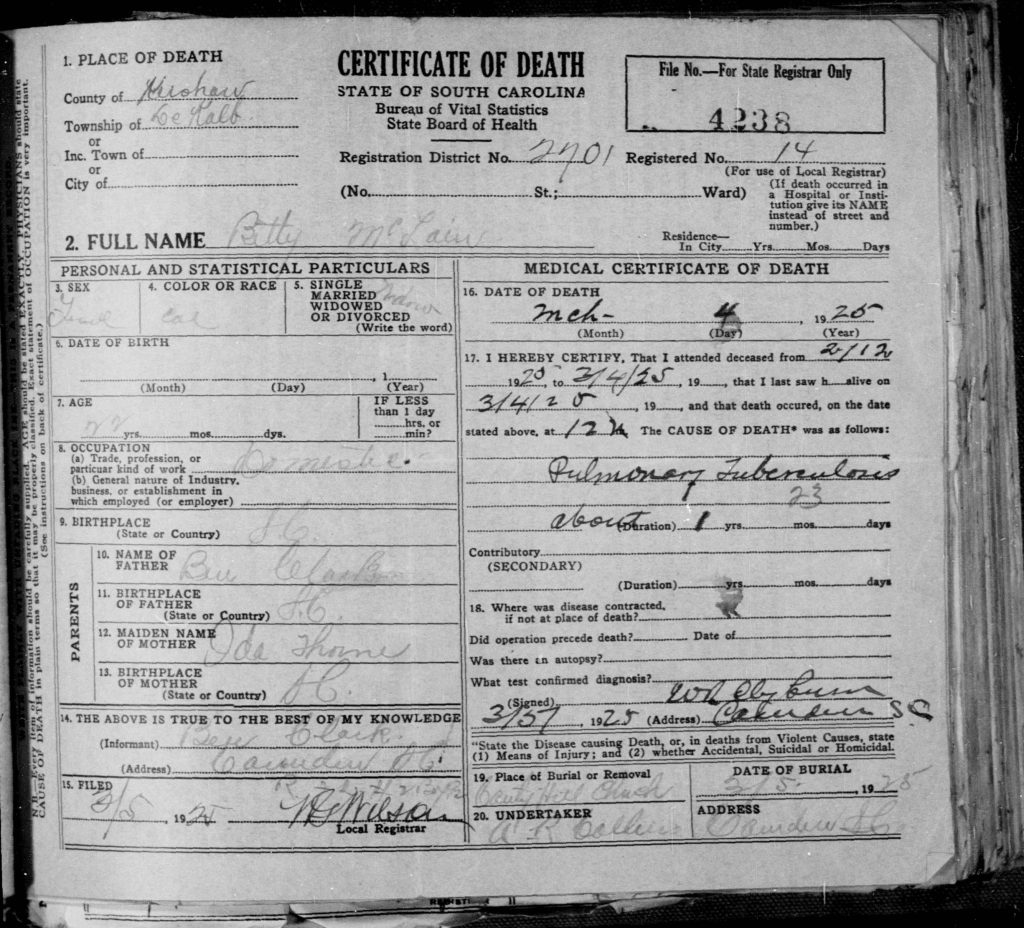 1. PLACE OF DEATH
County of Kershaw
Township of DeKalb
or
Inc. Town of
or
City of
CERTIFICATE OF DEATH
STATE OF SOUTH CAROLINA
Bureau of Vital Statistics
State Board of Health
File No.—For State Registrar Only
4238
Registration District No. 2701 Registered No. 14
(For use of Local Registrar)
(No. St.; Ward)
(If death occurred in
a Hospital or Insti-
tution give its NAME
instead of street and
number.)
2. FULL NAME Betty McLain
Residence—
In City Yrs. Mos. Days
PERSONAL AND STATISTICAL PARTICULARS
3. SEX
4. COLOR OR RACE
Col
5. SINGLE
MARRIED
WIDOWED
OR DIVORCED
(Write the word)
Widow
6. DATE OF BIRTH
, 1
(Month) (Day) (Year)
7. AGE
22 yrs. mos. dys.
IF LESS
than 1 day
hrs. or
min?
8. OCCUPATION
(a) Trade, profession, or
particuar kind of work Domestic
(b) General nature of Industry,
business, or establishment in
which employed (or employer)
9. BIRTHPLACE
(State or Country) S.C.
PARENTS
10. NAME OF
FATHER Ben Clark
11. BIRTHPLACE
OF FATHER
(State or Country) S.C.
12. MAIDEN NAME
OF MOTHER Ida
13. BIRTHPLACE
OF MOTHER
(State or Country) S.C.
14. THE ABOVE IS TRUE TO THE BEST OF MY KNOWLEDGE
(Informant) Ben Clark
(Address) Camden S.C.
15. FILED
3/5 1925 Wilson
Local Registrar
MEDICAL CERTIFICATE OF DEATH
16. DATE OF DEATH
Mch- 4, 1925
(Month) (Day) (Year)
17. I HEREBY CERTIFY, That I attended deceased from 2/12
1925, to 3/4/25, 19, that I last saw h alive on
3/4/25, 19, and that death occured, on the date
stated above, at 12 M. The CAUSE OF DEATH* was as follows:
Pulmonary Tuberculosis
23
about (Duration) 1 yrs. mos. days
Contributory
(SECONDARY)
(Duration) yrs. mos. days
18. Where was disease contracted,
if not at place of death?
Did operation precede death? Date of
Was there an autopsy?
What test confirmed diagnosis?
(Signed) Clyburn
3/5/ 1925 (Address) Camden SC
*State the Disease causing Death, or, in deaths from Violent Causes, state
(1) Means of Injury; and (2) whether Accidental, Suicidal or Homicidal.
19. Place of Burial or Removal
Church
DATE OF BURIAL
3/5, 1925
20. UNDERTAKER
ADDRESS
Camden SC
N. B.—Every item of information should be carefully supplied. AGE should be stated EXACTLY. PHYSICIANS should state
CAUSE OF DEATH in plain terms so that it may be properly classified. Exact statement of OCCUPATION is very important.
(See instructions on back of certificate.)